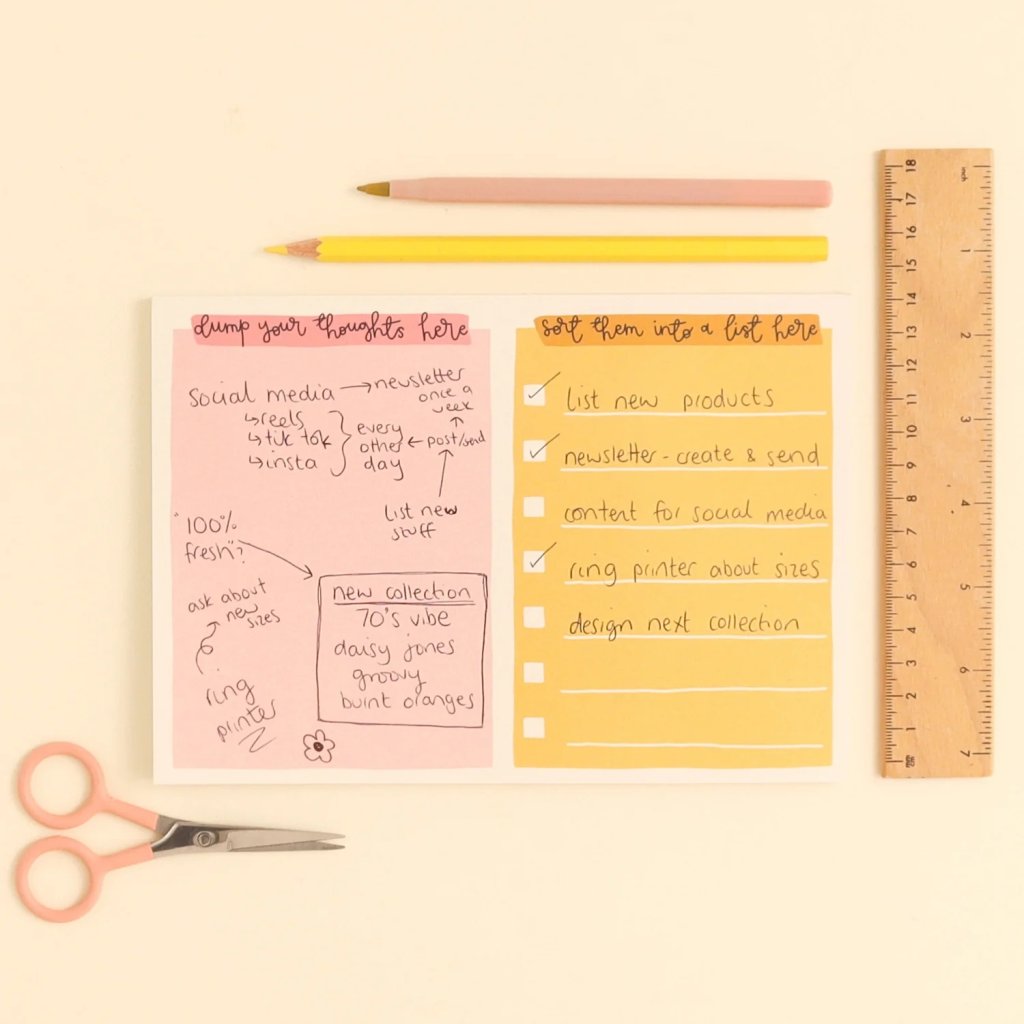 dump your thoughts here
Social media → newsletter
once a
week
↳ reels
↳ tik tok
↳ insta
every
other
day
← post/send
list new
stuff
"100%
fresh"?
ask about
new
sizes
ring
printer
new collection
70's vibe
daisy jones
groovy
burnt oranges
sort them into a list here
list new products
newsletter - create & send
content for social media
ring printer about sizes
design next collection
inch
1
2
3
4
5
6
7
18
17
16
15
14
13
12
11
10
9
8
7
6
5
4
3
2
1